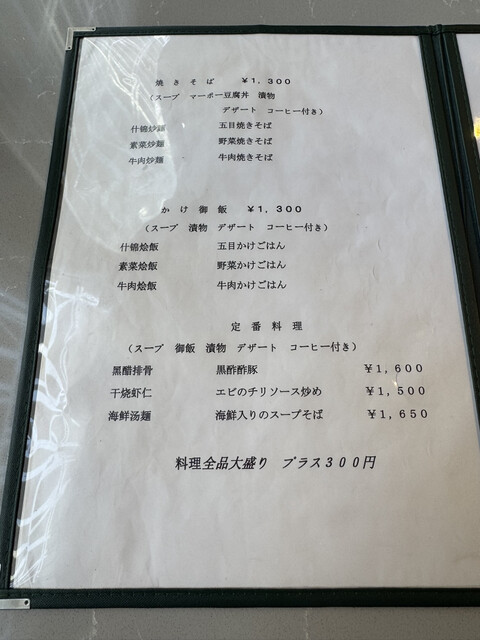 焼きそば ￥1,300
(スープ マーボー豆腐丼 漬物
デザート コーヒー付き)
什锦炒麺 五目焼きそば
素菜炒麺 野菜焼きそば
牛肉炒麺 牛肉焼きそば
かけ御飯 ￥1,300
(スープ 漬物 デザート コーヒー付き)
什锦烩飯 五目かけごはん
素菜烩飯 野菜かけごはん
牛肉烩飯 牛肉かけごはん
定番料理
(スープ 御飯 漬物 デザート コーヒー付き)
黑醋排骨 黒酢酢豚 ￥1,600
干烧虾仁 エビのチリソース炒め ￥1,500
海鲜汤麺 海鮮入りのスープそば ￥1,650
料理全品大盛り プラス３００円